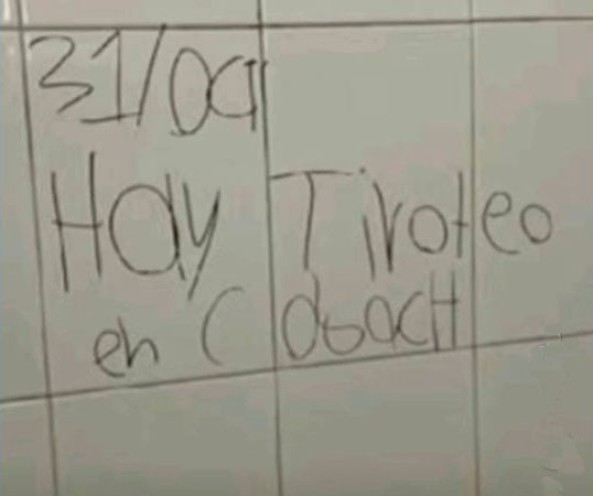 31/Oct
Hay Tiroteo
en CobacH